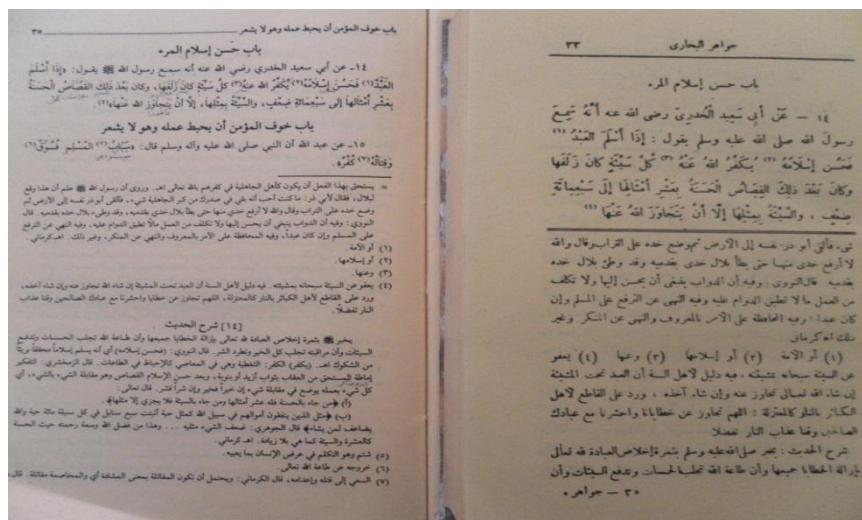 جواهر البخارى ٣٣
باب حسن إسلام المرء
١٤ — عَنْ أَبِى سَعِيدٍ الْخُدرِىِّ رضى الله عنه أَنَّهُ سَمِعَ
رسولَ الله صلى الله عليه وسلم يقول : إِذَا أَسْلَمَ العَبْدُ (١)
فَحَسُنَ إِسْلَامُهُ (٢) يُكَفِّرُ اللهُ عَنْهُ (٣) كُلَّ سَيِّئَةٍ كانَ زَلَفَهَا
وكانَ بَعْدَ ذلِكَ القِصَاصُ الْحَسَنَةُ بِعَشْرِ أَمْثَالِهَا إِلَى سَبْعِمِائَةِ
ضِعْفٍ ، والسَّيِّئَةُ بِمِثْلِهَا إِلَّا أَنْ يَتَجَاوَزَ اللهُ عَنْهَا (٤)
شىء فألقى أبو ذر نفسه إلى الأرض ثم وضع خده على التراب وقال والله
لا أرفع خدى منها حتى يطأ بلال خدى بقدميه وقد وطئ بلال خده
بقدميه قال النووى : وفيه أن الدواب ينبغى أن يحسن إليها ولا تكلف
من العمل ما لا تطيق الدوام عليه وفيه النهى عن الترفع على المسلم وإن
كان عبدا . وفيه المحافظة على الأمر بالمعروف والنهى عن المنكر وغير
ذلك اهـ كرمانى
(١) أو الأمة (٢) أو إسلامها (٣) وعنها (٤) يعفو
عن السيئة سبحانه بمشيئته . فيه دليل لأهل السنة أن العبد تحت المشيئة
إن شاء الله تعالى تجاوز عنه وإن شاء آخذه . ورد على القاطع لأهل
الكبائر بالنار كالمعتزلة : اللهم تجاوز عن خطايانا واحشرنا مع عبادك
الصالحين وقنا عذاب النار تفضلا
شرح الحديث : يخبر صلى الله عليه وسلم بثمرة إخلاص العبادة لله تعالى
بإزالة الخطايا جميعها وأن طاعة الله تجلب الحسنات وتدفع السيئات وأن
٣ — جواهر
باب خوف المؤمن أن يحبط عمله وهو لا يشعر ٣٥
باب حَسن إسلام المرء
١٤ـ عن أبي سعيد الخدري رضي الله عنه أنه سمع رسول الله ﷺ يقول: «إِذَا أَسْلَمَ
العَبْدُ(١) فَحَسُنَ إِسْلَامُهُ(٢) يُكَفِّرُ الله عَنْهُ(٣) كلَّ سَيِّئَةٍ كانَ زَلَفَهَا، وكان بَعْدَ ذَلِكَ القَصَاصُ الحَسَنَةُ
بِعَشْرِ أَمْثَالهَا إلى سَبْعِمَائةِ ضِعْفٍ، والسَّيِّئَةُ بِمِثْلِهَا، إِلَّا أَنْ يَتَجاوَزَ الله عَنْهَا»(٤).
باب خوف المؤمن أن يحبط عمله وهو لا يشعر
١٥ـ عن عبد الله أن النبي صلى الله عليه وآله وسلم قال: «سِبَابُ(٥) المُسْلِمِ فُسُوقٌ(٦)
وَقِتَالُهُ(٧) كُفْرٌ».
= يستحق بهذا الفعل أن يكون كأهل الجاهلية في كفرهم بالله تعالى اهـ. وروي أن رسول الله ﷺ علم أن هذا وقع
لبلال، فقال لأبي ذر: ما كنت أحب أنه بقي في صدرك من كبر الجاهلية شيء، فألقى أبو ذر نفسه إلى الأرض ثم
وضع خده على التراب وقال والله لا أرفع خدي منها حتى يطأ بلال خدي بقدميه، وقد وطىء بلال خده بقدميه. قال
النووي: وفيه أن الدواب ينبغي أن يحسن إليها ولا تكلف من العمل مالًا تطيق الدوام عليه، وفيه النهي عن الترفع
على المسلم وإن كان عبداً، وفيه المحافظة على الأمر بالمعروف والنهي عن المنكر، وغير ذلك. اهـ.كرماني.
(١) أو الأمة.
(٢) أو إسلامها.
(٣) وعنها.
(٤) يعفو عن السيئة سبحانه بمشيئته. فيه دليل لأهل السنة أن العبد تحت المشيئة إن شاء الله تجاوز عنه وإن شاء آخذه،
ورد على القاطع لأهل الكبائر بالنار كالمعتزلة، اللهم تجاوز عن خطايا واحشرنا مع عبادك الصالحين وقنا عذاب
النار تفضلًا.
[١٤] شرح الحديث
يخبر ﷺ بثمرة إخلاص العبادة لله تعالى بإزالة الخطايا جميعها وأن طاعة الله تجلب الحسنات وتدفع
السيئات وأن مراقبته تجلب كل الخير وتطرد الشر. قال النووي: (فحسن إسلامه) أي أنه يسلم إسلاماً محققاً بريئاً
من الشكوك اهـ. (يكفر) الكفر: التغطية وهي في المعاصي كالإحباط في الطاعات. قال الزمخشري: التفكير
إماطة المستحق من العقاب بثواب أزيد أو بتوبة، ويعد حسن الإسلام القصاص وهو مقابلة الشيء بالشيء، أي
كل شيء يعمله يوضع في مقابلة شيء إن خيراً فخير وإن شراً فشر. قال تعالى.
(أ) ﴿من جاء بالحسنة فله عشر أمثالها ومن جاء بالسيئة فلا يجزي إلا مثلها﴾.
(ب) ﴿مثل الذين ينفقون أموالهم في سبيل الله كمثل حبة أنبتت سبع سنابل في كل سنبلة مائة حبة والله
يضاعف لمن يشاء﴾ قال الجوهري: ضعف الشيء مثليه ... وهذا من فضل الله وسعة رحمته حيث الحسنة
كالعشرة والسيئة كما هي بلا زيادة. اهـ كرماني.
(٥) شتم وهو التكلم في عرض الإنسان بما يعيبه.
(٦) خروجه عن طاعة الله تعالى.
(٧) السعي إلى قتله وإعدامه، قال الكرماني: ويحتمل أن تكون المقاتلة بمعنى المشادة أي والمخاصمة مقاتلة. قال